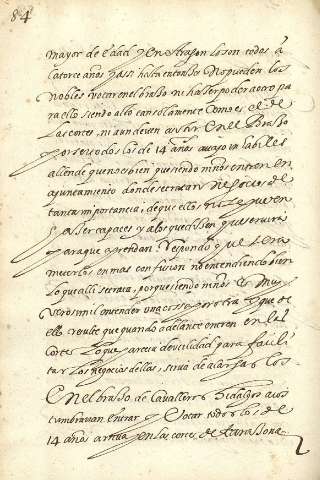 84
mayor de edad y en Aragon lo son todos á
catorce años y assi hasta entonsses No pueden los
nobles votar en el brasso ni haser poder a otro pa
ra ello siendo alto consolamente Como es el de
Las cortes, ni aun deven assistir En el Brasso
por ser todos los de 14 años aun
allende que no es bien que siendo niños entren en
ayuntamiento donde se tratan Negocios de
tanta importancia, de que ellos no se pueden
haser capaces y a los que dissen que servira
para que aprendan Respondo que sera
meterlos en mas confusion no entendiendo bien
lo que alli se trata, porque siendo niños es muy
verosimil entender una cossa por otra y que de
ello resulte que quando adelante entren en las
cortes Lo que parecia de utilidad para facili
tar Los negocios dellas, sirva de alargarlos
En el brasso de Cavalleros e Hidalgos
tambravan Entrar y votar todos los de
14 años arriba y en las cortes de Tarassona